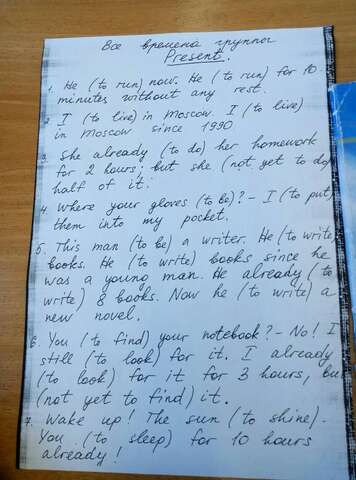 Все времена группы
Present.
1. He (to run) now. He (to run) for 10
minutes without any rest.
2. I (to live) in Moscow. I (to live)
in Moscow since 1990
3. She already (to do) her homework
for 2 hours; but she (not yet to do)
half of it.
4. Where your gloves (to be)? - I (to put)
them into my pocket.
5. This man (to be) a writer. He (to write)
books. He (to write) books since he
was a young man. He already (to
write) 8 books. Now he (to write) a
new novel.
6. You (to find) your notebook? - No! I
still (to look) for it. I already
(to look) for it for 3 hours, but
(not yet to find) it.
7. Wake up! The sun (to shine).
You (to sleep) for 10 hours
already!